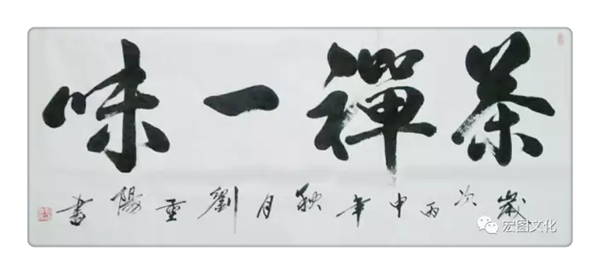 茶禪一味
歲次丙申年秋月劉重陽書
宏图文化